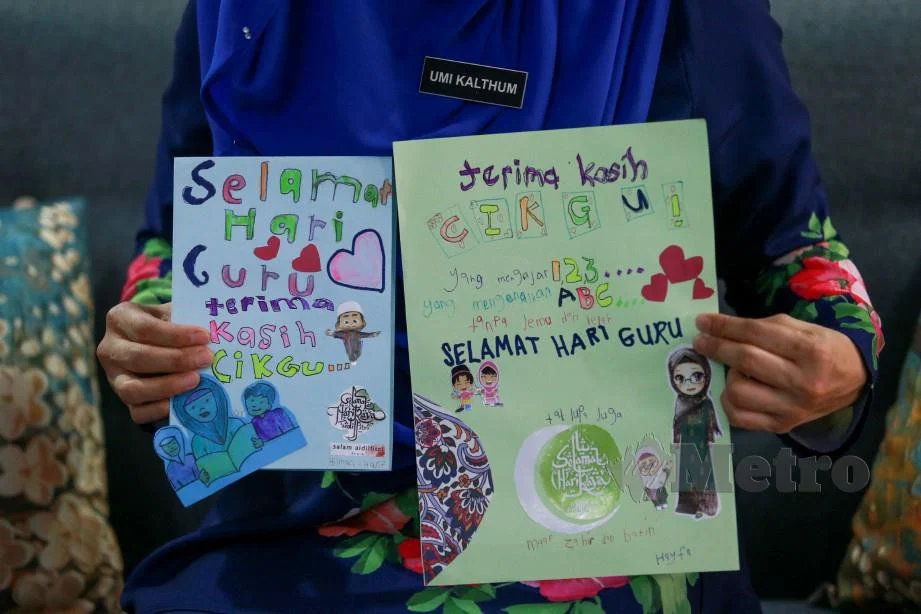 UMI KALTHUM
Selamat
Hari
Guru
terima
Kasih
CiKGU...
Selamat
Hari Raya
salam aidilfitri
terima kasih
CIKGU!
yang mengajar 123....
yang mengenalkan ABC....
tanpa jemu dan
SELAMAT HARI GURU
tak lupa juga
Selamat
Hari Raya
maaf zahir dan batin
Hayfa
Metro